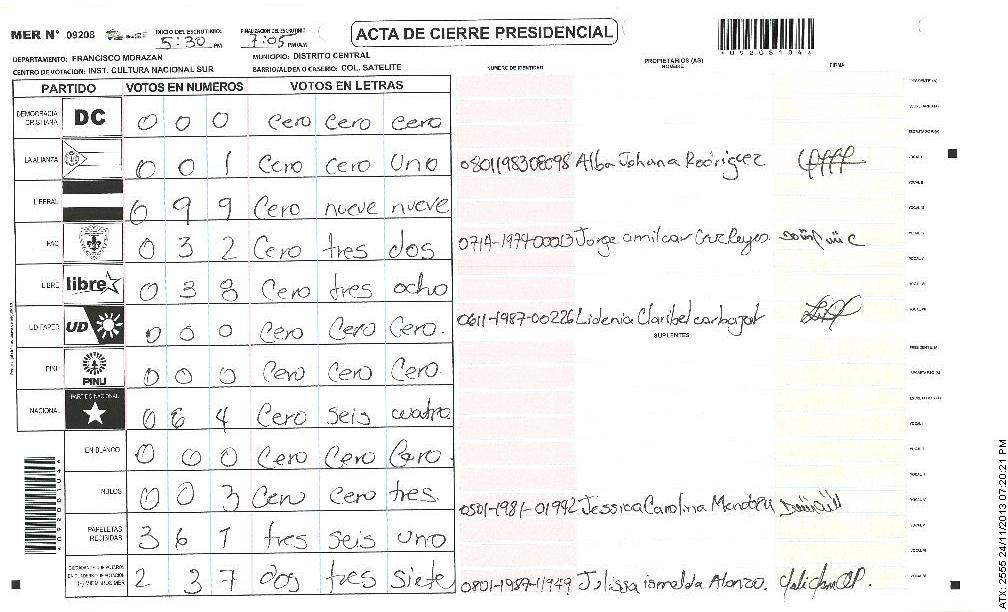 MER N° 09208 INICIO DEL ESCRUTINIO: 5:30 PM FINALIZACION DEL ESCRUTINIO 7:05 PM/AM ACTA DE CIERRE PRESIDENCIAL
*09208104*
DEPARTAMENTO: FRANCISCO MORAZAN MUNICIPIO: DISTRITO CENTRAL
CENTRO DE VOTACION: INST. CULTURA NACIONAL SUR BARRIO/ALDEA O CASERIO: COL. SATELITE
NUMERO DE IDENTIDAD PROPIETARIOS (AS) NOMBRE FIRMA
PARTIDO VOTOS EN NUMEROS VOTOS EN LETRAS
DEMOCRACIA CRISTIANA DC 0 0 0 Cero cero cero
LA ALIANZA 0 0 1 Cero cero uno 0801198308098 Alba Johana Rodriguez
LIBERAL 0 9 9 Cero nueve nueve
PAC 0 3 2 Cero tres dos 0714-1974-00013 Jorge amilcar Cruz Reyes.
LIBRE libre 0 3 8 Cero tres ocho
UD FAPER UD 0 0 0 Cero Cero Cero. 0611-1987-00226 Lidenia Claribel carbajal
SUPLENTES
PINU PINU 0 0 0 Cero Cero Cero.
NACIONAL PARTIDO NACIONAL 0 6 4 Cero seis cuatro
EN BLANCO 0 0 0 Cero Cero Cero.
NULOS 0 0 3 Cero Cero tres 0501-1981-01942 Jessica Carolina Mendoza
PAPELETAS RECIBIDAS 3 6 1 tres seis uno
2 3 7 dos tres siete 0801-1987-11949 Julissa ismelda Alonzo.
*09208104*
ATX:2555 24/11/2013 07:20:21 PM